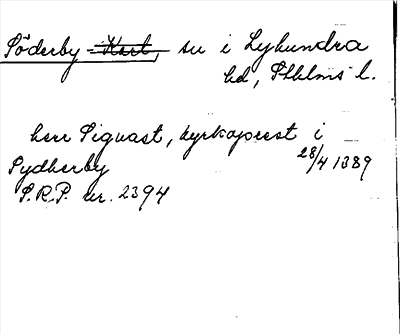 Söderby Karl, sn i Lyhundra
hd, Sthlms l.
herr Siguast, kyrkoprest i
Sydherby 28/4 1389
S.R.P. nr. 2394